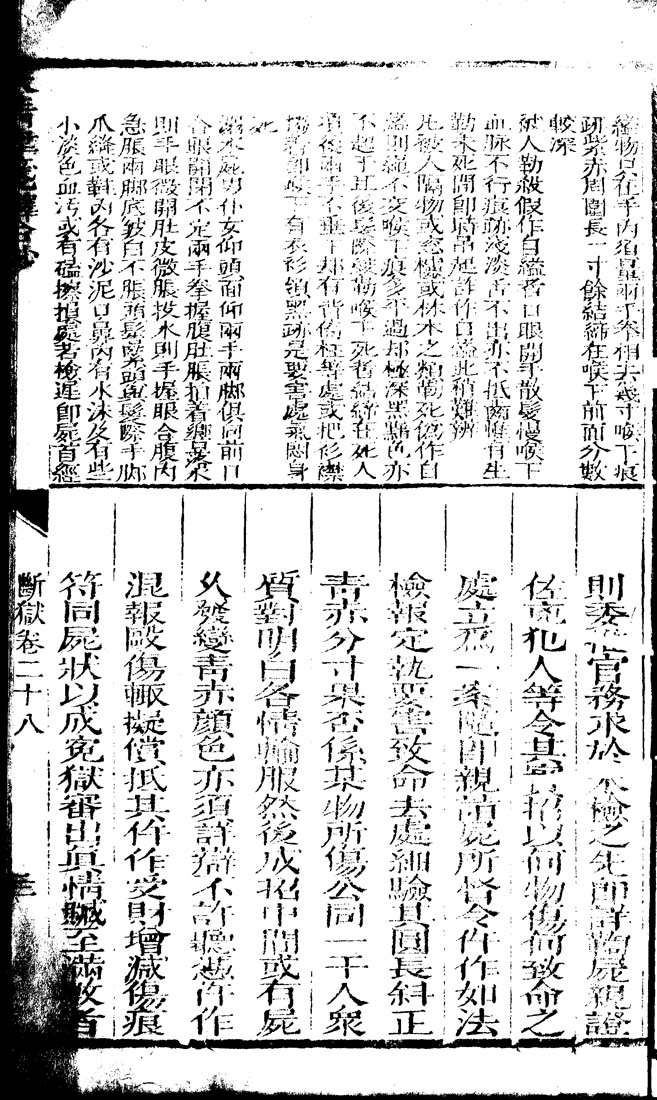 縊物只在手內須量兩手拳相去幾寸喉下痕
跡紫赤周圍長一寸餘結締在喉下前面分數
較深
被人勒殺假作自縊者口眼開手散髮慢喉下
血脉不行痕跡淺淡舌不出亦不抵齒惟有生
勒未死間卽時吊起詐作自縊此稍難辨
凡被人隔物或窓櫺或林木之類勒死偽作自
縊則繩不交喉下痕多平過却極深黑黯色亦
不起于耳後髮際絞勒喉下死者結締在死人
項後兩手不垂下却有背倚柱等處或把衫襟
着卽喉下有衣衫領黑跡是要害處氣悶身
死
溺水屍男仆女仰頭面仰兩手兩脚俱向前口
合眼開閉不定兩手拳握腹肚脹拍着響是水
則手眼微開肚皮微脹投水則手握眼合腹內
急脹兩脚底皺白不脹頭髻緊頭與髮際手脚
爪縫或鞋內各有沙泥口鼻內有水沫及有些
小淡色血汚或有磕擦損處若檢遲卽屍首經
則委官務求於未檢之先卽詳鞫屍親證
佐兇犯人等令其招以何物傷何致命之
處立爲一案隨卽親詣屍所督令仵作如法
檢報定執要害致命去處細驗其圓長斜正
青赤分寸果否係某物所傷公同一干人衆
質對明白各情輸服然後成招中間或有屍
久發變青赤顔色亦須詳辯不許聽憑仵作
混報毆傷輙擬償抵其仵作受財增減傷痕
符同屍狀以成寃獄審出眞情贓至滿數者
斷獄卷二十八 三